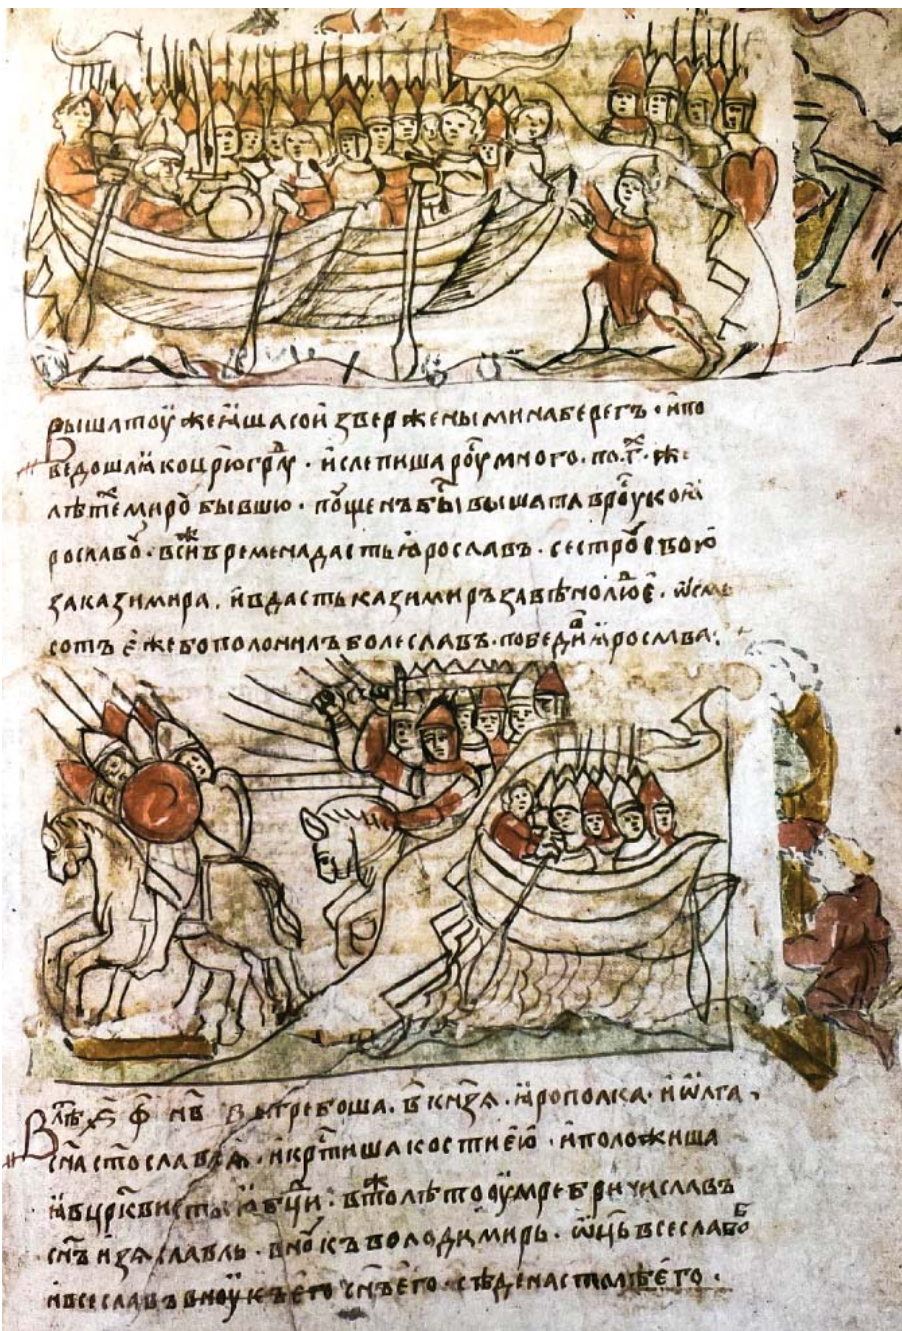 Вышатоу же ꙗша сои звержеными на берегъ · ипо
ведоша ꙗ ко цр҃югра ⷣу · ислепиша роⷭу много · по г҃ хⷤ же
лѣтеⷯ мироⷹ бывшю · поущенъ быⷭ вышата в роⷭу ко ꙗ
рославоу · в сиⷤ времена дасть ꙗрославъ · сестроу свою
за казимира · и вдасть казимиръ за вѣно люⷣе · ѿсмь
сотъ еже бо полонилъ болеславъ · победиⷡ ꙗрослава :
В лѣⷮ ҂ѕ҃ ф҃ н҃в выгребоша · в҃ кн҃зѧ · ꙗрополка · и ѡлга ·
сн҃а ст҃ославлѧ · и крⷭтиша кости ею · и положиша
ꙗ в црк҃ви ст҃ыꙗ бц҃и · в тоⷤ лѣто оумре бричиславъ
сн҃ъ изѧславль · вноⷹкъ володимирь · ѿц҃ь всеславⷧ
и всеславъ вноукъ его сн҃ъ его · сѣде на столѣ его ·